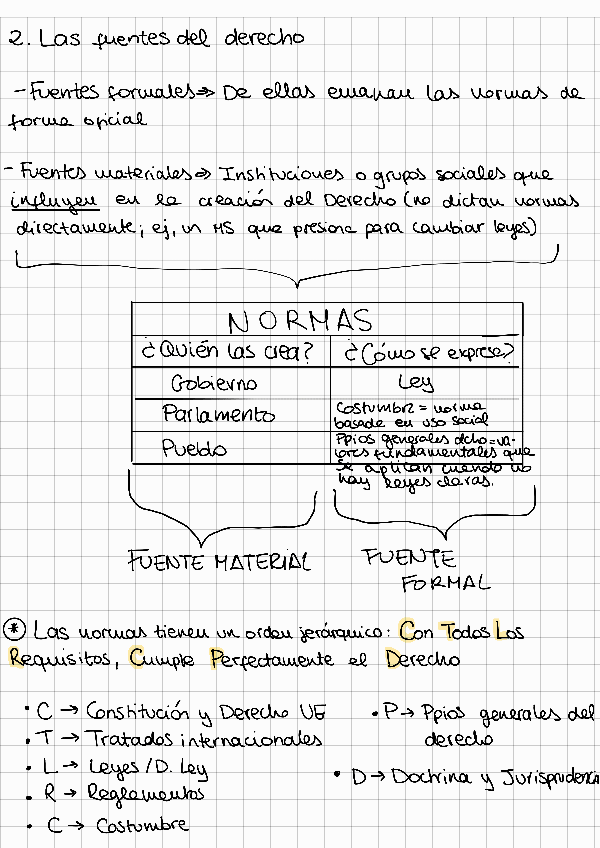 2. Las fuentes del derecho
- Fuentes formales ⇒ De ellas emanan las normas de
forma oficial
- Fuentes materiales ⇒ Instituciones o grupos sociales que
influyen en la creación del Derecho (no dictan normas
directamente; ej, un MS que presione para cambiar leyes)
NORMAS
¿Quién las crea? ¿Cómo se exprese?
Gobierno Ley
Parlamento Costumbre = norma
basada en uso social
Pueblo Ppios generales dcho = va-
lores fundamentales que
se aplican cuando no
hay leyes claras.
FUENTE MATERIAL FUENTE
FORMAL
* Las normas tienen un orden jerárquico: Con Todos Los
Requisitos, Cumple Perfectamente el Derecho
• C → Constitución y Derecho UE
• T → Tratados internacionales
• L → Leyes / D. Ley
• R → Reglamentos
• C → Costumbre
• P → Ppios generales del
derecho
• D → Doctrina y Jurisprudencia